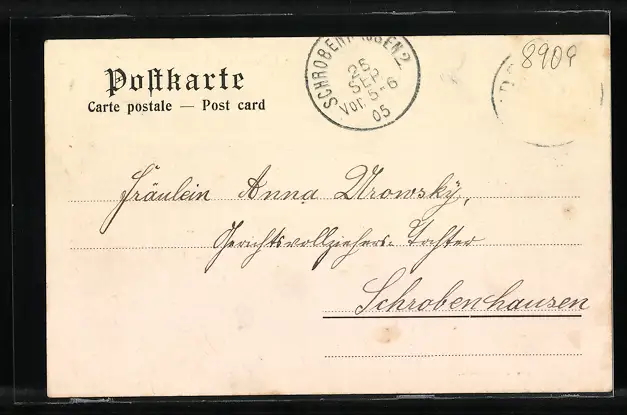 Postkarte
Carte postale — Post card
SCHROBENHAUSEN 2
25
SEP
Vor. 5-6
05
8909
Fräulein Anna Urowsky,
Gerichtsvollziehers-Tochter
Schrobenhausen